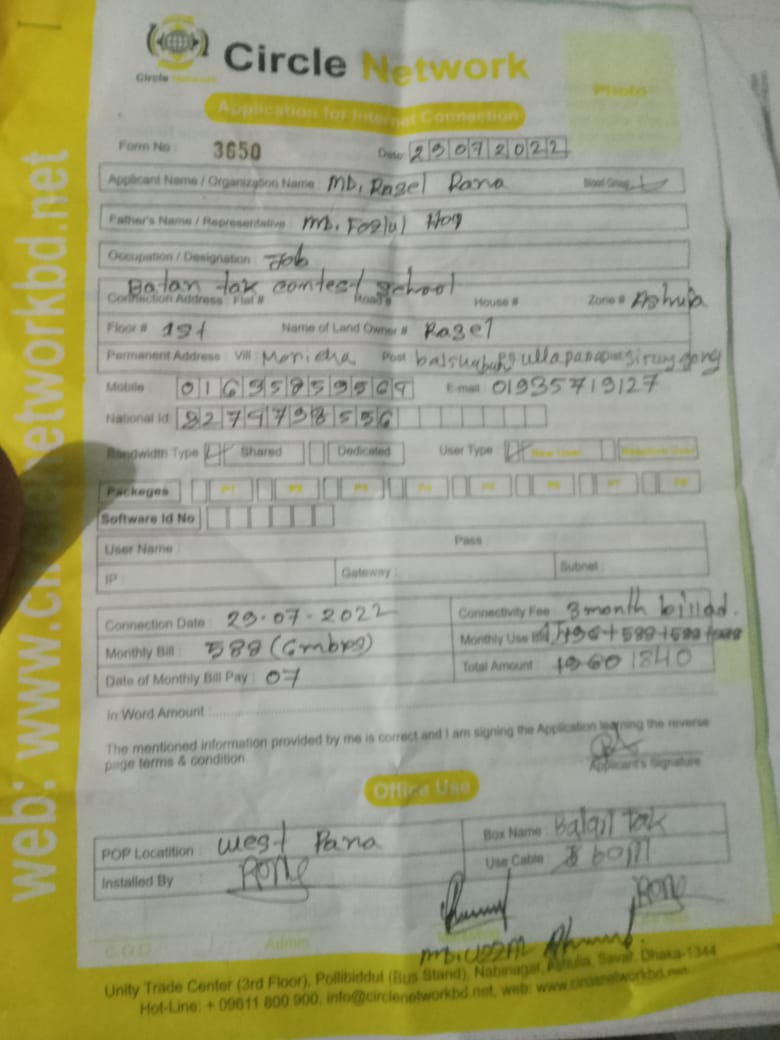 web: www.circlenetworkbd.net
Circle Network
Circle Network
Photo
Application for Internet Connection
Form No : 3650 Date 29072022
Applicant Name / Organization Name : MD. Rasel Rana Blood Group
Father's Name / Representative : MD. Fozlul Hoq
Occupation / Designation : Job
Balan tak contest school
Connection Address : Flat # Road # House # Zone # Ashulia
Floor # 1st Name of Land Owner # Rasel
Permanent Address : Vill : Monicha Post
Mobile : E-mail : 01935719127
National Id
Bandwidth Type Shared Dedicated User Type : New User
Packeges P1 P2 P3 P4 P5 P6 P7 P8
Software Id No
User Name : Pass :
IP : Gateway : Subnet :
Connection Date : 29-07-2022 Connectivity Fee : 3 month billad.
Monthly Bill : 588 (6mbps) Monthly Use Bill
Date of Monthly Bill Pay : 07 Total Amount : 1840
In Word Amount :
The mentioned information provided by me is correct and I am signing the Application learning the reverse
page terms & condition.
Applicant's Signature
Office Use
POP Locatition : West Para Box Name : Balan tak
Installed By : Rony Use Cable : 60m
Rony
C.O.O Admin
Unity Trade Center (3rd Floor), Pollibiddut (Bus Stand), Nabinagar, Ashulia, Savar, Dhaka-1344
Hot-Line: + 09611 800 900, info@circlenetworkbd.net, web: www.circlenetworkbd.net